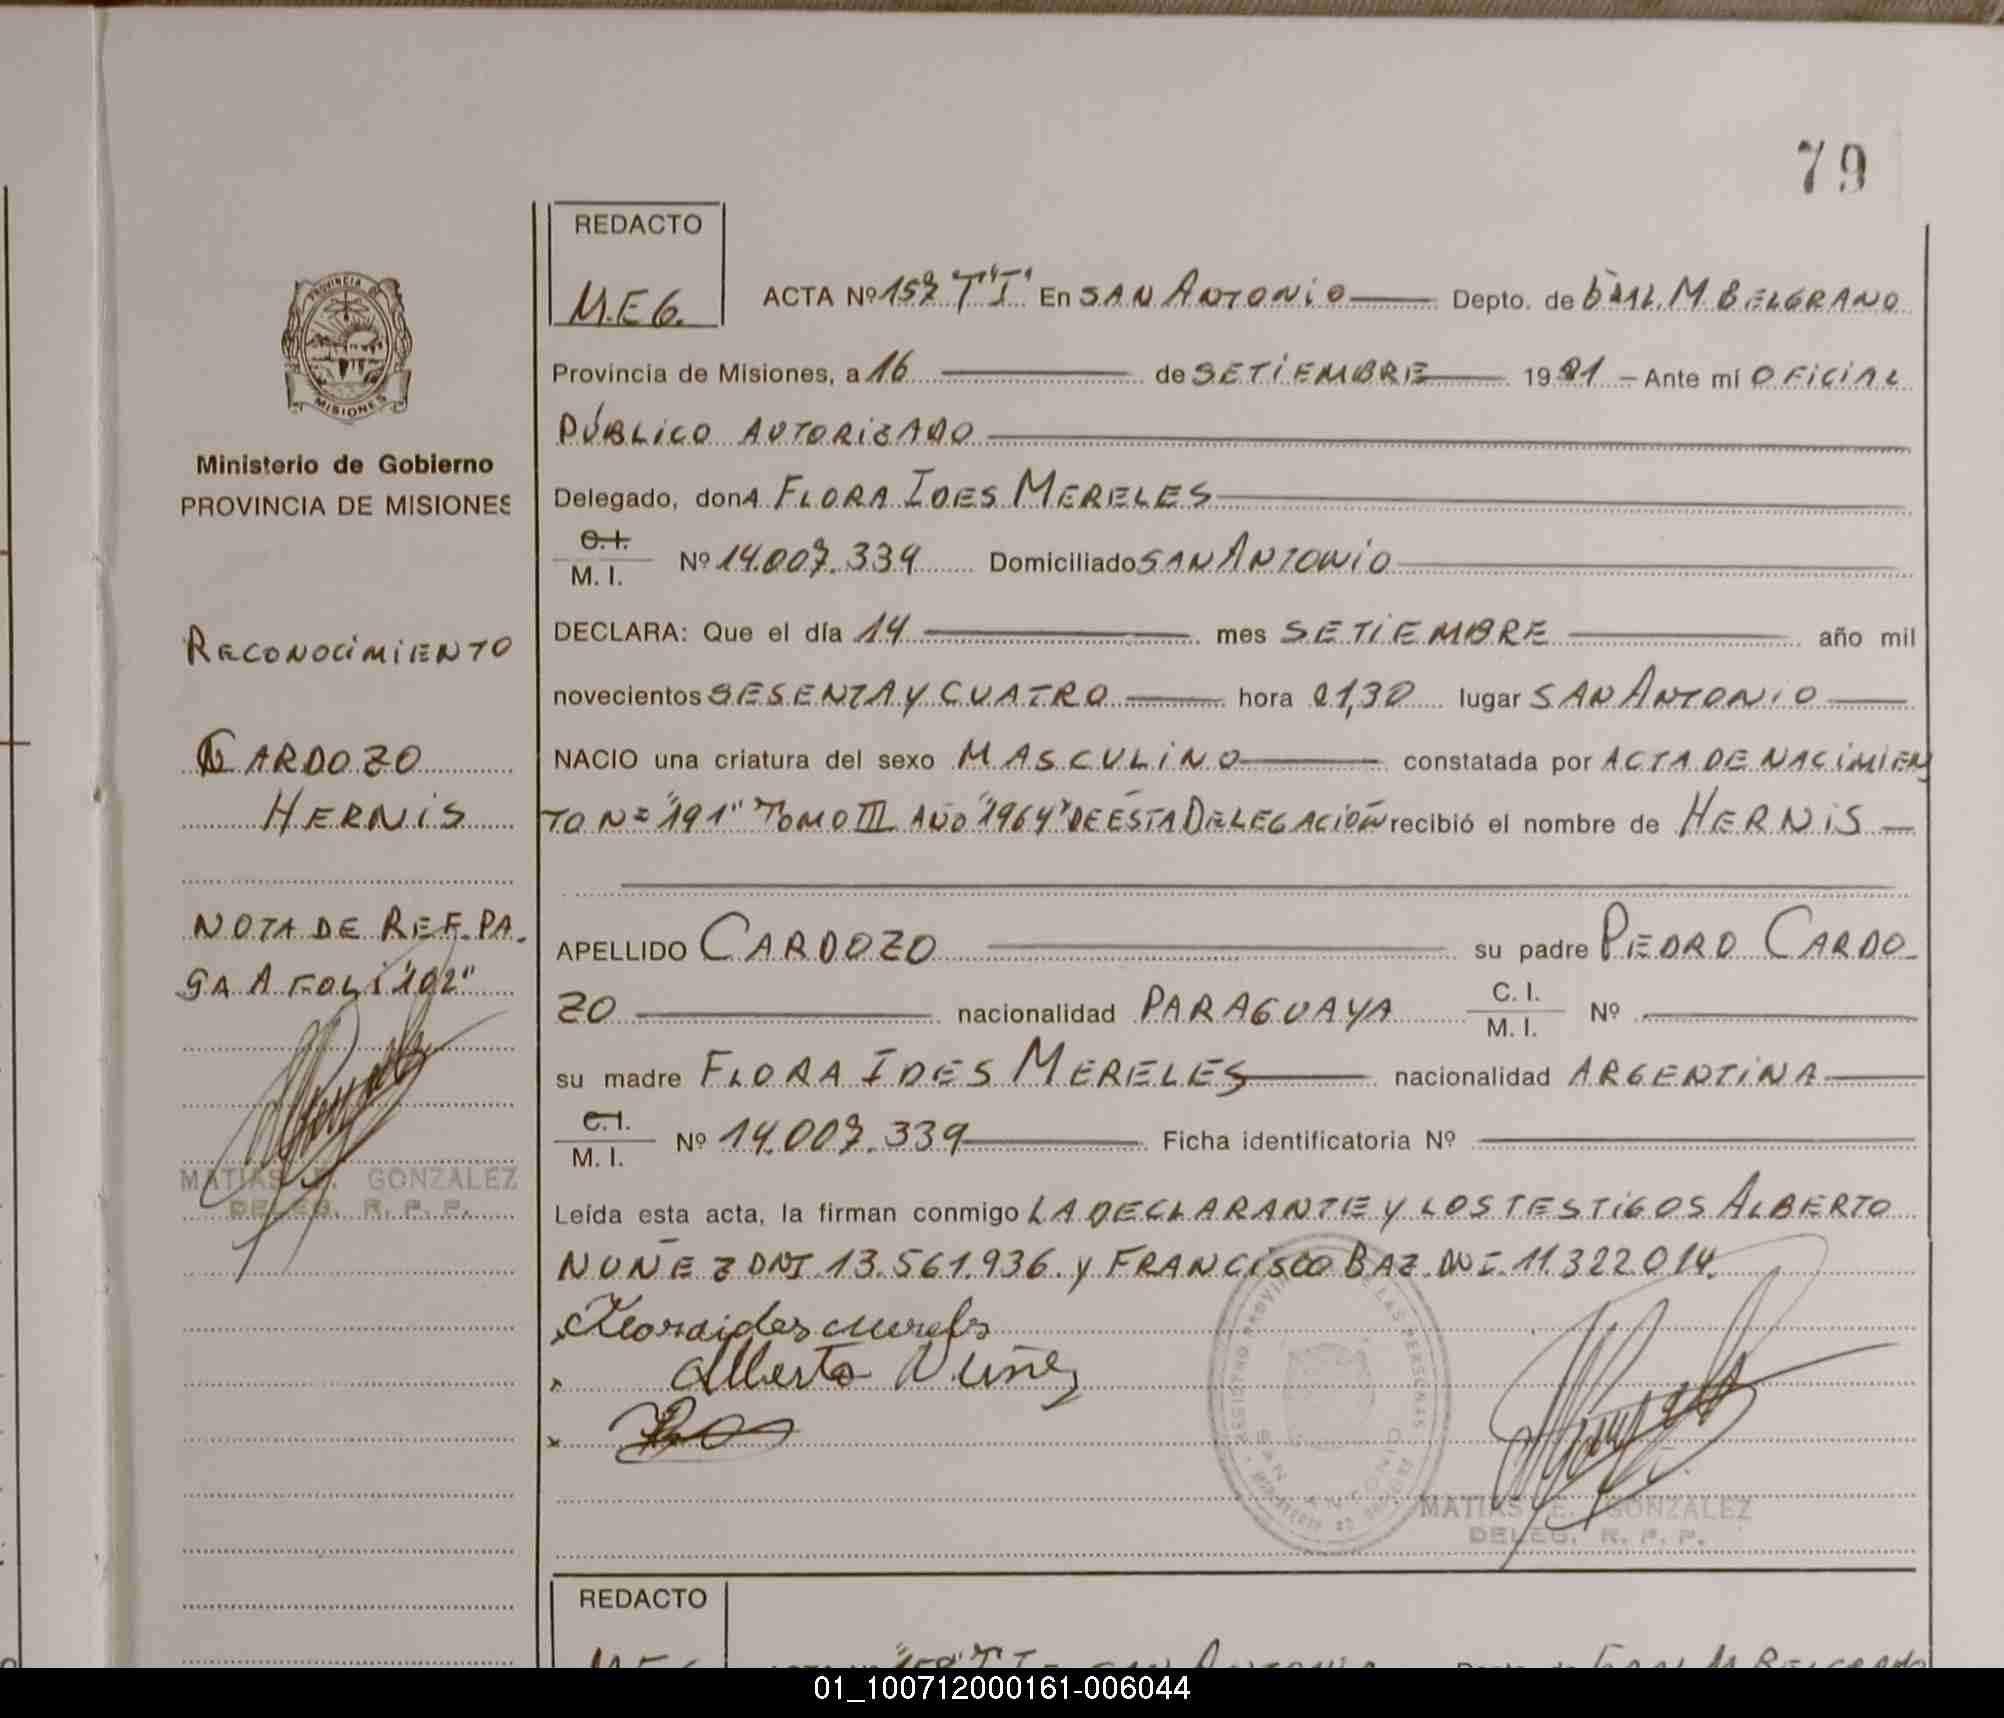 79
REDACTO
M.E.G.
ACTA Nº 157 T"I" En SAN ANTONIO Depto. de GRAL. M. BELGRANO
Provincia de Misiones, a 16 de SETIEMBRE 1981 - Ante mí OFICIAL
PÚBLICO AUTORIZADO
Delegado, donA FLORA IDES MERELES
C.I.
M. I. Nº 14.007.339 Domiciliado SAN ANTONIO
DECLARA: Que el día 14 mes SETIEMBRE año mil
novecientos SESENTA Y CUATRO hora 21,30 lugar SAN ANTONIO
NACIO una criatura del sexo MASCULINO constatada por ACTA DE NACIMIEN
TO Nº "191" TOMO III AÑO "1964" DE ESTA DELEGACIÓN recibió el nombre de HERNIS
APELLIDO CARDOZO su padre PEDRO CARDO-
ZO nacionalidad PARAGUAYA C. I.
M. I. Nº
su madre FLORA IDES MERELES nacionalidad ARGENTINA
C.I.
M. I. Nº 14.007.339 Ficha identificatoria Nº
Leída esta acta, la firman conmigo LA DECLARANTE Y LOS TESTIGOS ALBERTO
NUÑEZ DNI. 13.561.936. y FRANCISCO BAZ. DNI. 11.322.014.
Alberto Nuñez
SAN ANTONIO
MATIAS E. GONZALEZ
DELEG. R. P. P.
PROVINCIA DE
MISIONES
Ministerio de Gobierno
PROVINCIA DE MISIONES
RECONOCIMIENTO
CARDOZO
HERNIS
NOTA DE REF. PA-
SA A FOLI "102"
MATIAS E. GONZALEZ
DELEG. R. P. P.
REDACTO
01_100712000161-006044